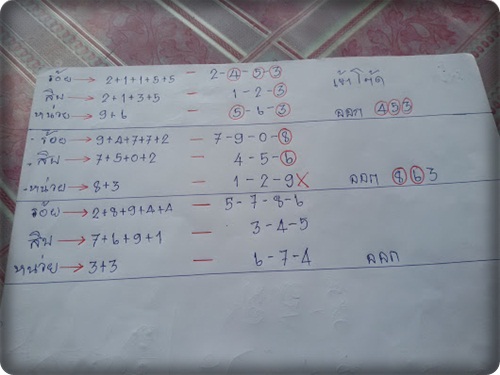 ร้อย → 2+1+1+5+5 — 2-4-5-3 เข้าโต๊ด
สิบ → 2+1+3+5 — 1-2-3
หน่วย → 9+6 — 5-6-3 ออก 453
ร้อย → 9+4+7+7+2 — 7-9-0-8
สิบ → 7+5+0+2 — 4-5-6
หน่วย → 8+3 — 1-2-9X ออก 863
ร้อย → 2+8+9+4+4 — 5-7-8-6
สิบ → 7+6+9+1 — 3-4-5
หน่วย → 3+3 — 6-7-4 ออก